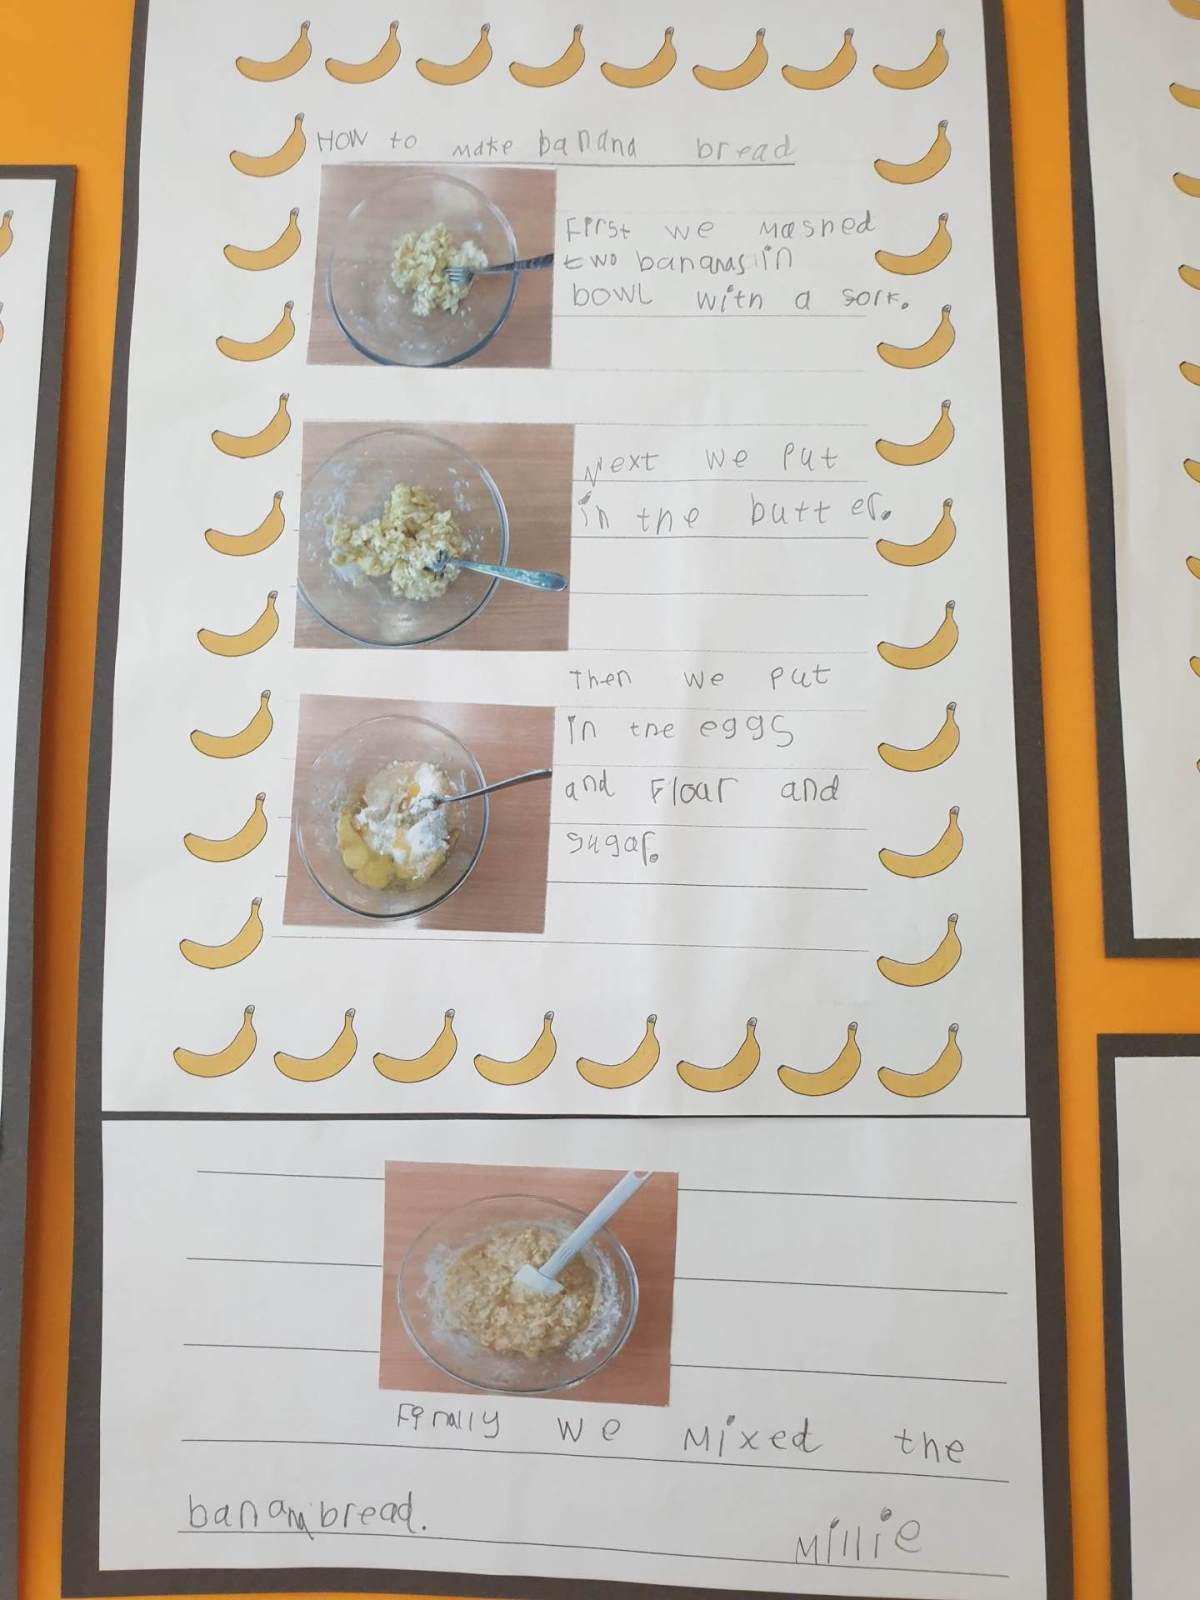 How to make banana bread
First we mashed
two bananas in
bowl with a sork.
Next we put
in the butter.
Then we put
in the eggs
and Flour and
sugar.
Finally we mixed the
banana bread.
Millie